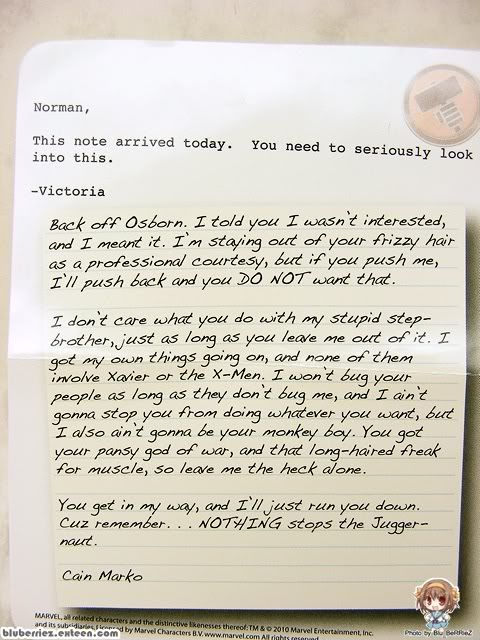 Norman,
This note arrived today.  You need to seriously look
into this.
-Victoria
Back off Osborn. I told you I wasn't interested,
and I meant it. I'm staying out of your frizzy hair
as a professional courtesy, but if you push me,
I'll push back and you DO NOT want that.
I don't care what you do with my stupid step-
brother, just as long as you leave me out of it. I
got my own things going on, and none of them
involve Xavier or the X-Men. I won't bug your
people as long as they don't bug me, and I ain't
gonna stop you from doing whatever you want, but
I also ain't gonna be your monkey boy. You got
your pansy god of war, and that long-haired freak
for muscle, so leave me the heck alone.
You get in my way, and I'll just run you down.
Cuz remember. . . NOTHING stops the Jugger-
naut.
Cain Marko
MARVEL, all related characters and the distinctive likenesses thereof: TM & © 2010 Marvel Entertainment, Inc.
and its subsidiaries. Licensed by Marvel Characters B.V. www.marvel.com All rights reserved.
bluberriez.exteen.com
Photo by Blu BeRRieZ